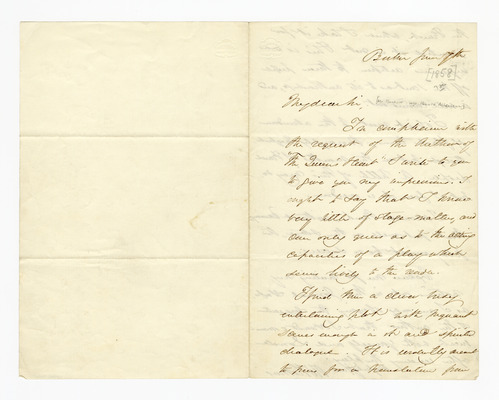 June 9th
[1858]
My dear Sir,
In compliance with
the request of the Author of
"The Queen's Heart" I write to you
to give you my impressions. I
ought to say that I know
very little of stage-matters, and
can only guess as to the acting
capacities of a play which
seems lively to the reader.
I find here a clever, very
entertaining plot, with
scenes enough in it and spirited
dialogue. It is evidently meant
to pass for a translation from